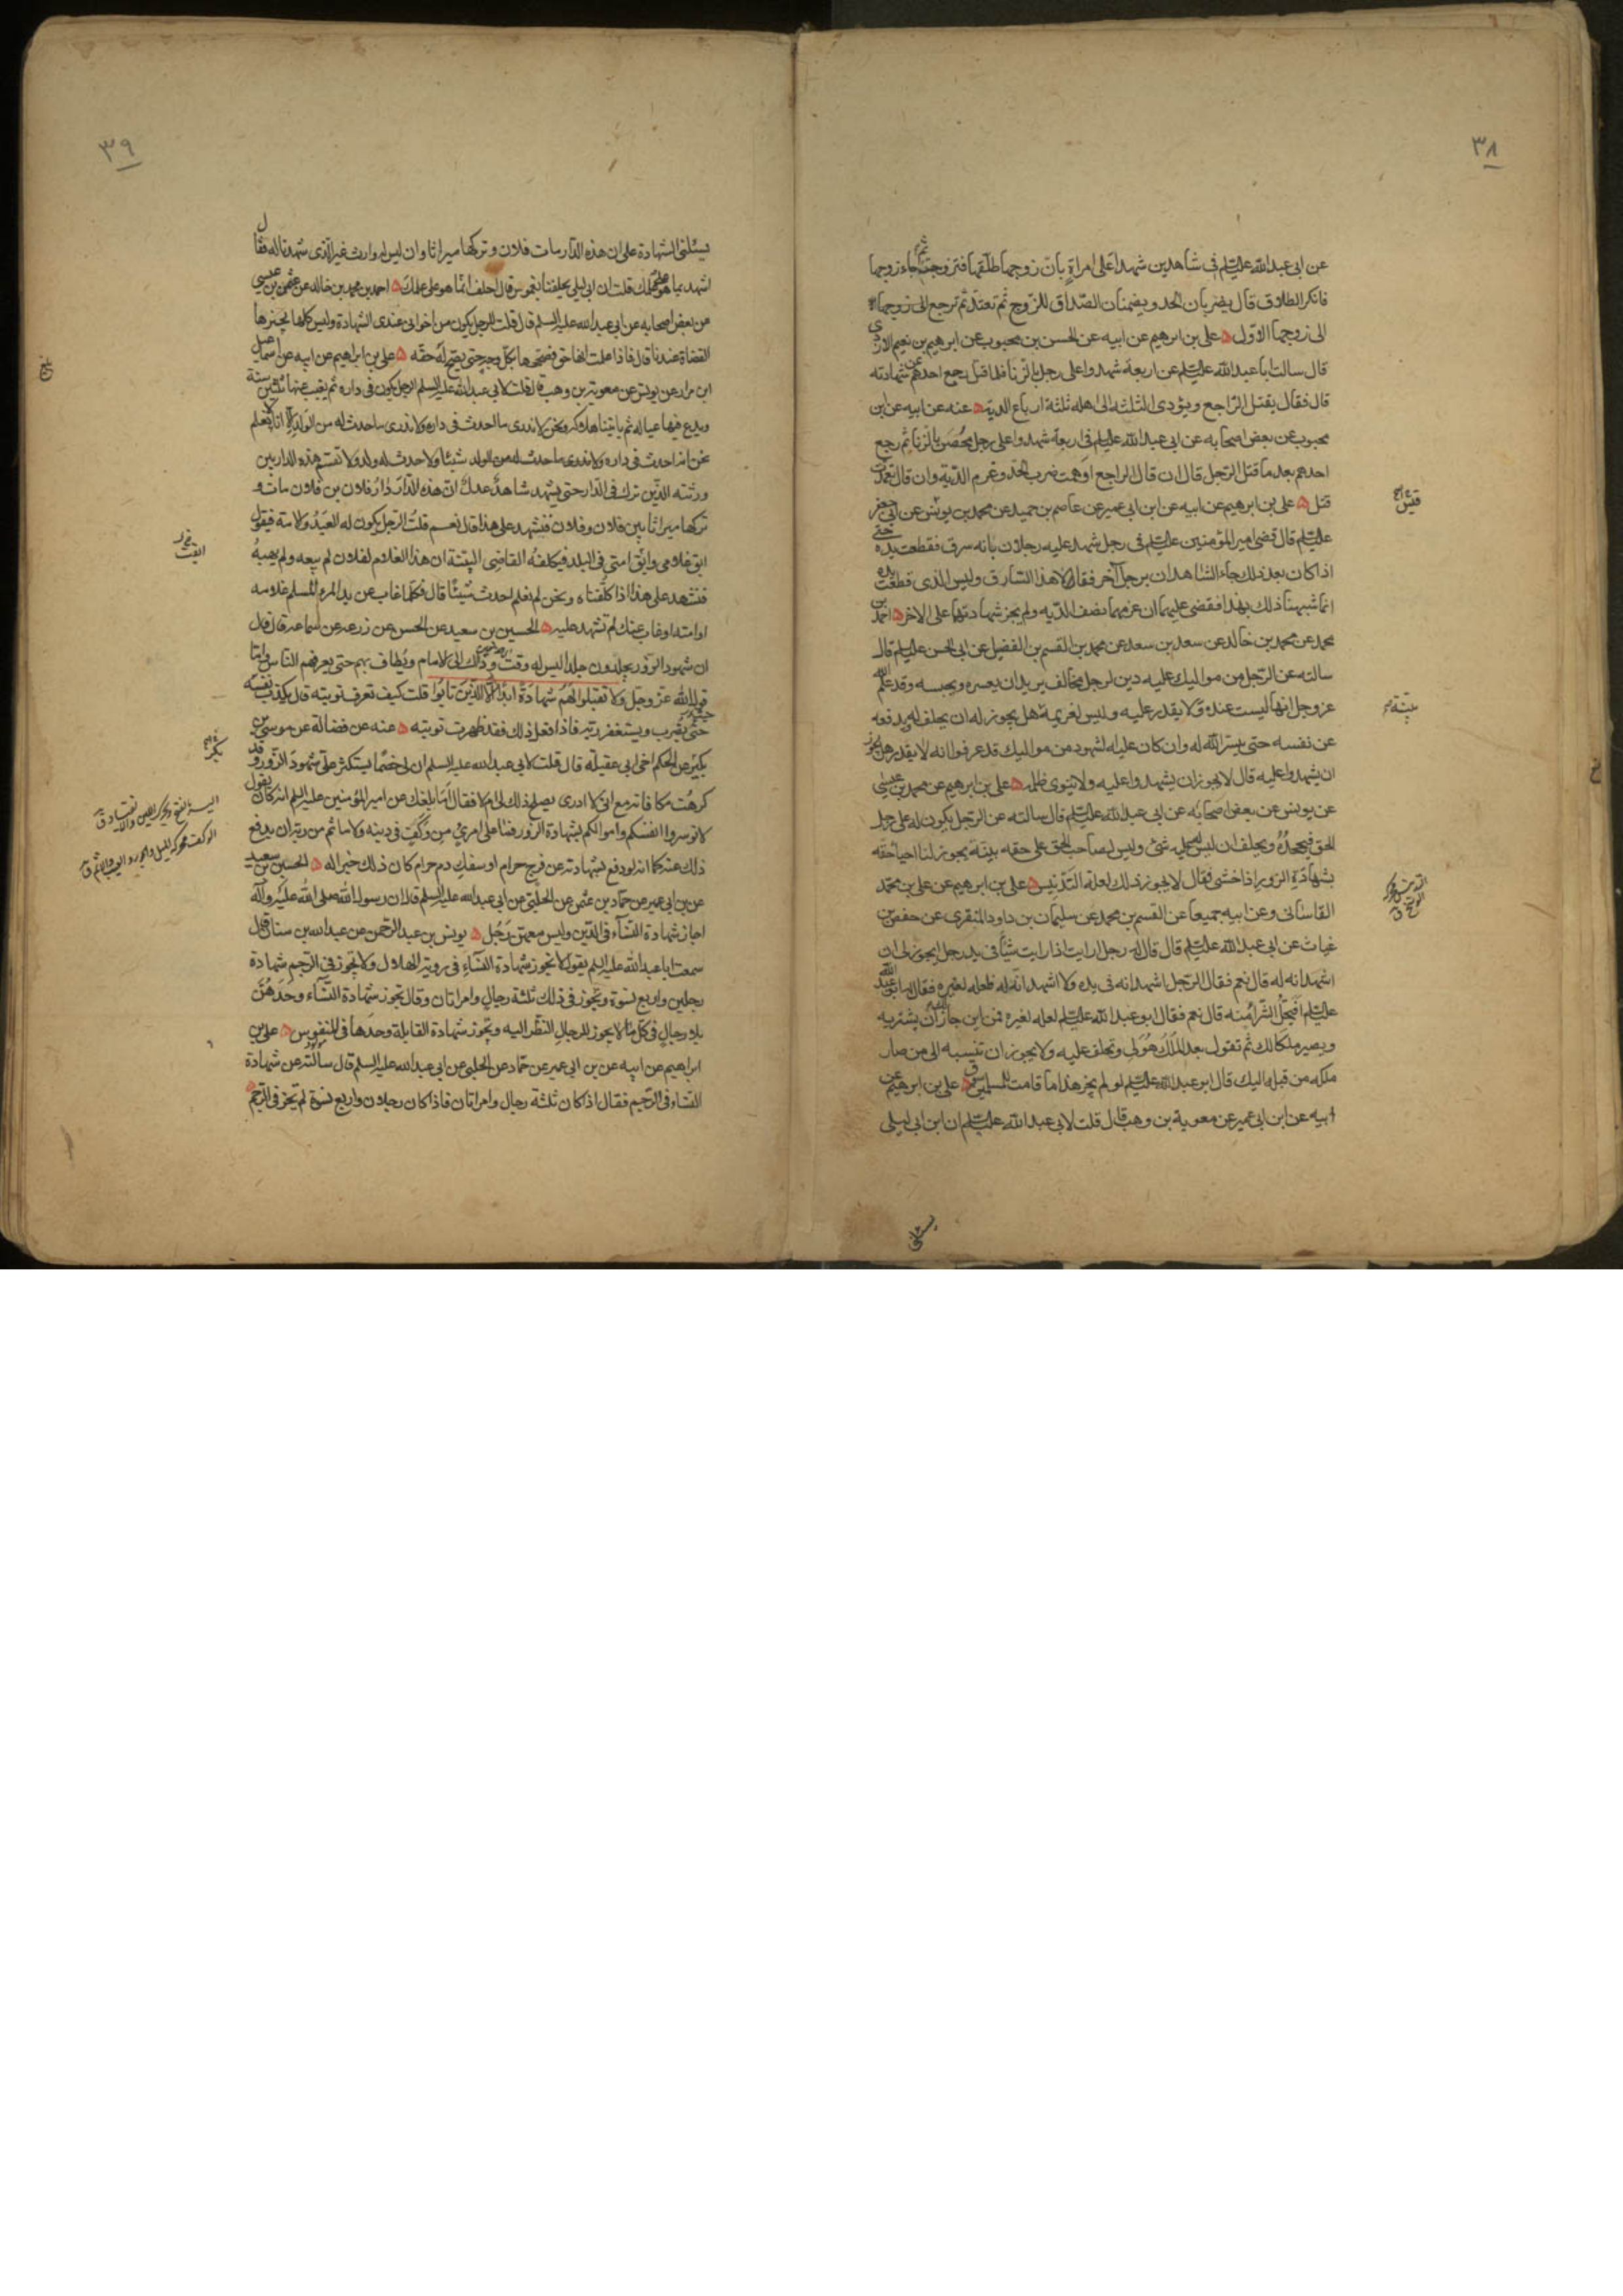 ٣٨
عن ابى عبد الله عليه السلم فى شاهدين شهدا على امراة بان زوجها طلقها فتزوجت ثم جاء زوجها
فانكر الطلاق قال يضربان الحد ويضمنان الصداق للزوج ثم تعتد ثم ترجع الى زوجها
الى زوجها الاول ه على بن ابرهيم عن ابيه عن الحسن بن محبوب عن ابرهيم بن نعيم الازدى
قال سالت ابا عبد الله عليه السلم عن اربعة شهدوا على رجل بالزنا فلما قتل رجع احدهم عن شهادته
قال فقال يقتل الراجع ويؤدى الثلثة الى اهله ثلثة ارباع الدية ه عنه عن ابيه عن ابن
محبوب عن بعض اصحابه عن ابى عبد الله عليه السلم فى اربعة شهدوا على رجل محصن بالزنا ثم رجع
احدهم بعد ما قتل الرجل قال ان قال الراجع اوهمت ضرب الحد وغرم الدية وان قال تعمدت
قتل ه على بن ابرهيم عن ابيه عن ابن ابى عمير عن عاصم بن حميد عن محمد بن عن ابى جعفر
عليه السلم قال قضى امير المؤمنين عليه السلم فى رجل شهد عليه رجلان بانه سرق فقطعت يده حتى
اذا كان بعد ذلك جاء الشاهدان برجل آخر فقالا هذا السارق وليس الذى قطعت يده
انما شبهنا ذلك بهذا فقضى عليهما ان غرمهما نصف الدية ولم يجز شهادتهما على الاخر ه احمد بن
محمد عن محمد بن خالد عن سعد بن سعد عن محمد بن القسم بن الفضيل عن ابى الحسن عليه السلم قال
سالته عن الرجل من مواليك عليه دين لرجل مخالف يريد ان يعسره ويحبسه وقد علم الله
عز وجل انها ليست عنده ولا يقدر عليه وليس لغريمه بينة هل يجوز له ان يحلف له ليدفعه
عن نفسه حتى ييسر الله له وان كان عليه لشهود من مواليك قد عرفوا انه لا يقدر هل يجوز
ان يشهدوا عليه قال لا يجوز ان يشهدوا عليه ولا ينوى ظلمه ه على بن ابرهيم عن محمد بن عيسى
عن يونس عن بعض اصحابه عن ابى عبد الله عليه السلم قال سالته عن الرجل يكون له على رجل
الحق فيجحده ويحلف ان ليس له عليه شئ وليس لصاحب الحق على حقه بينة يجوز لنا احياء حقه
بشهادة الزور اذا خشى فقال لا يجوز ذلك لعلة التدليس ه على بن ابرهيم عن على بن محمد
القاسانى وعن ابيه جميعا عن القسم بن محمد عن سليمان بن داود المنقرى عن حفص بن
غياث عن ابى عبد الله عليه السلم قال قال له رجل ارايت اذا رايت شيأ فى يد رجل ايجوز لى ان
اشهد انه له قال نعم فقال الرجل اشهد انه فى يده ولا اشهد انه له فلعله لغيره فقال له ابو عبد الله
عليه السلم افيحل الشراء منه قال نعم فقال ابو عبد الله عليه السلم لعله لغيره فمن اين جاز لك ان يشتريه
ويصير ملكا لك ثم تقول بعد الملك هو لى وتحلف عليه ولا يجوز ان تنسبه الى من صار
ملكه من قبله اليك قال ابو عبد الله عليه السلم لو لم يجز هذا ما قامت للمسلمين سوق ه على بن ابرهيم عن
ابيه عن ابن ابى عمير عن معوية بن وهب قال قلت لابى عبد الله عليه السلم ان ابن ابى ليلى
يسئلنى
٣٩
يسئلنى الشهادة على ان هذه الدار مات فلان وتركها ميراثا وان ليس له وارث غير الذى شهدنا له فقال
اشهد بما هو علمك قلت ان ابن ابى ليلى يحلفنا الغموس قال احلف انما هو على علمك ه احمد بن محمد بن خالد عن عثمن بن عيسى
عن بعض اصحابه عن ابى عبد الله عليه السلم قال قلت للرجل يكون من اخوانى عندى الشهادة وليس كلها يجيزها
القضاة عندنا قال فاذا علمت انها حق فصححها بكل وجه حتى يصح له حقه ه على بن ابراهيم عن ابيه عن اسمعيل
ابن مرار عن يونس عن معوية بن وهب قال قلت لابى عبد الله عليه السلم الرجل يكون فى داره ثم يغيب عنها ثلثين سنة
ويدع فيها عياله ثم ياتينا هلاكه ونحن لا ندرى ما احدث فى داره ولا ندرى ما حدث له من الولد الا انا لا نعلم
نحن انه احدث فى داره ولا ندرى ما حدث له من الولد شيئا ولا حدث له ولد ولا تقسم هذه الدار بين
ورثته الذين ترك فى الدار حتى يشهد شاهدا عدل ان هذه الدار دار فلان بن فلان مات و
تركها ميراثا بين فلان وفلان فنشهد على هذا قال نعم قلت الرجل يكون له العبد والامة فيقول
ابق غلامى وابقت امتى فى البلد فيكلفه القاضى البينة ان هذا الغلام لفلان لم يبعه ولم يهبه
فنشهد على هذا اذا كلفناه ونحن لم نعلم احدث شيئا قال فكلما غاب عن يد المرء المسلم غلامه
او امته او غاب عنك لم تشهد عليه ه الحسين بن سعيد عن الحسن عن زرعة عن سماعة قال قال
ان شهود الزور يجلدون جلدا ليس له وقت وذاك الى الامام ويطاف بهم حتى يعرفهم الناس واما
قول الله عز وجل ولا تقبلوا لهم شهادة ابدا الا الذين تابوا قلت كيف تعرف توبته قال يكذب نفسه
حتى يضرب ويستغفر ربه فاذا فعل ذلك فقد ظهرت توبته ه عنه عن فضالة عن موسى بن
بكير عن الحكم اخى ابى عقيلة قال قلت لابى عبد الله عليه السلم ان لى خصما يستكثر على شهود الزور وقد
كرهت مكافاته مع انى لا ادرى يصلح ذلك لى ام لا فقال اما بلغك عن امير المؤمنين عليه السلم انه كان يقول
لا توسروا انفسكم واموالكم بشهادة الزور فما على امرئ من وكف فى دينه ولا ماثم من ربه ان يدفع
ذلك عنه كما انه لو دفع بشهادته عن فرج حرام او سفك دم حرام كان ذلك خيرا له ه الحسين بن سعيد
عن بن ابى عمير عن حماد بن عثمن عن الحلبى عن ابى عبد الله عليه السلم قال ان رسول الله صلى الله عليه وآله
اجاز شهادة النساء فى الدين وليس معهن رجل ه يونس بن عبد الرحمن عن عبد الله بن سنان قال
سمعت ابا عبد الله عليه السلم يقول لا تجوز شهادة النساء فى روية الهلال ولا تجوز فى الرجم شهادة
رجلين واربع نسوة وتجوز فى ذلك ثلثة رجال وامراتان وقال تجوز شهادة النساء وحدهن
بلا رجال فى كل ما لا يجوز للرجال النظر اليه وتجوز شهادة القابلة وحدها فى المنفوس ه على بن
ابراهيم عن ابيه عن بن ابى عمير عن حماد عن الحلبى عن ابى عبد الله عليه السلم قال سالته عن شهادة
النساء فى الرجم فقال اذا كان ثلثة رجال وامراتان فاذا كان رجلان واربع نسوة لم تجز فى الرجم ه